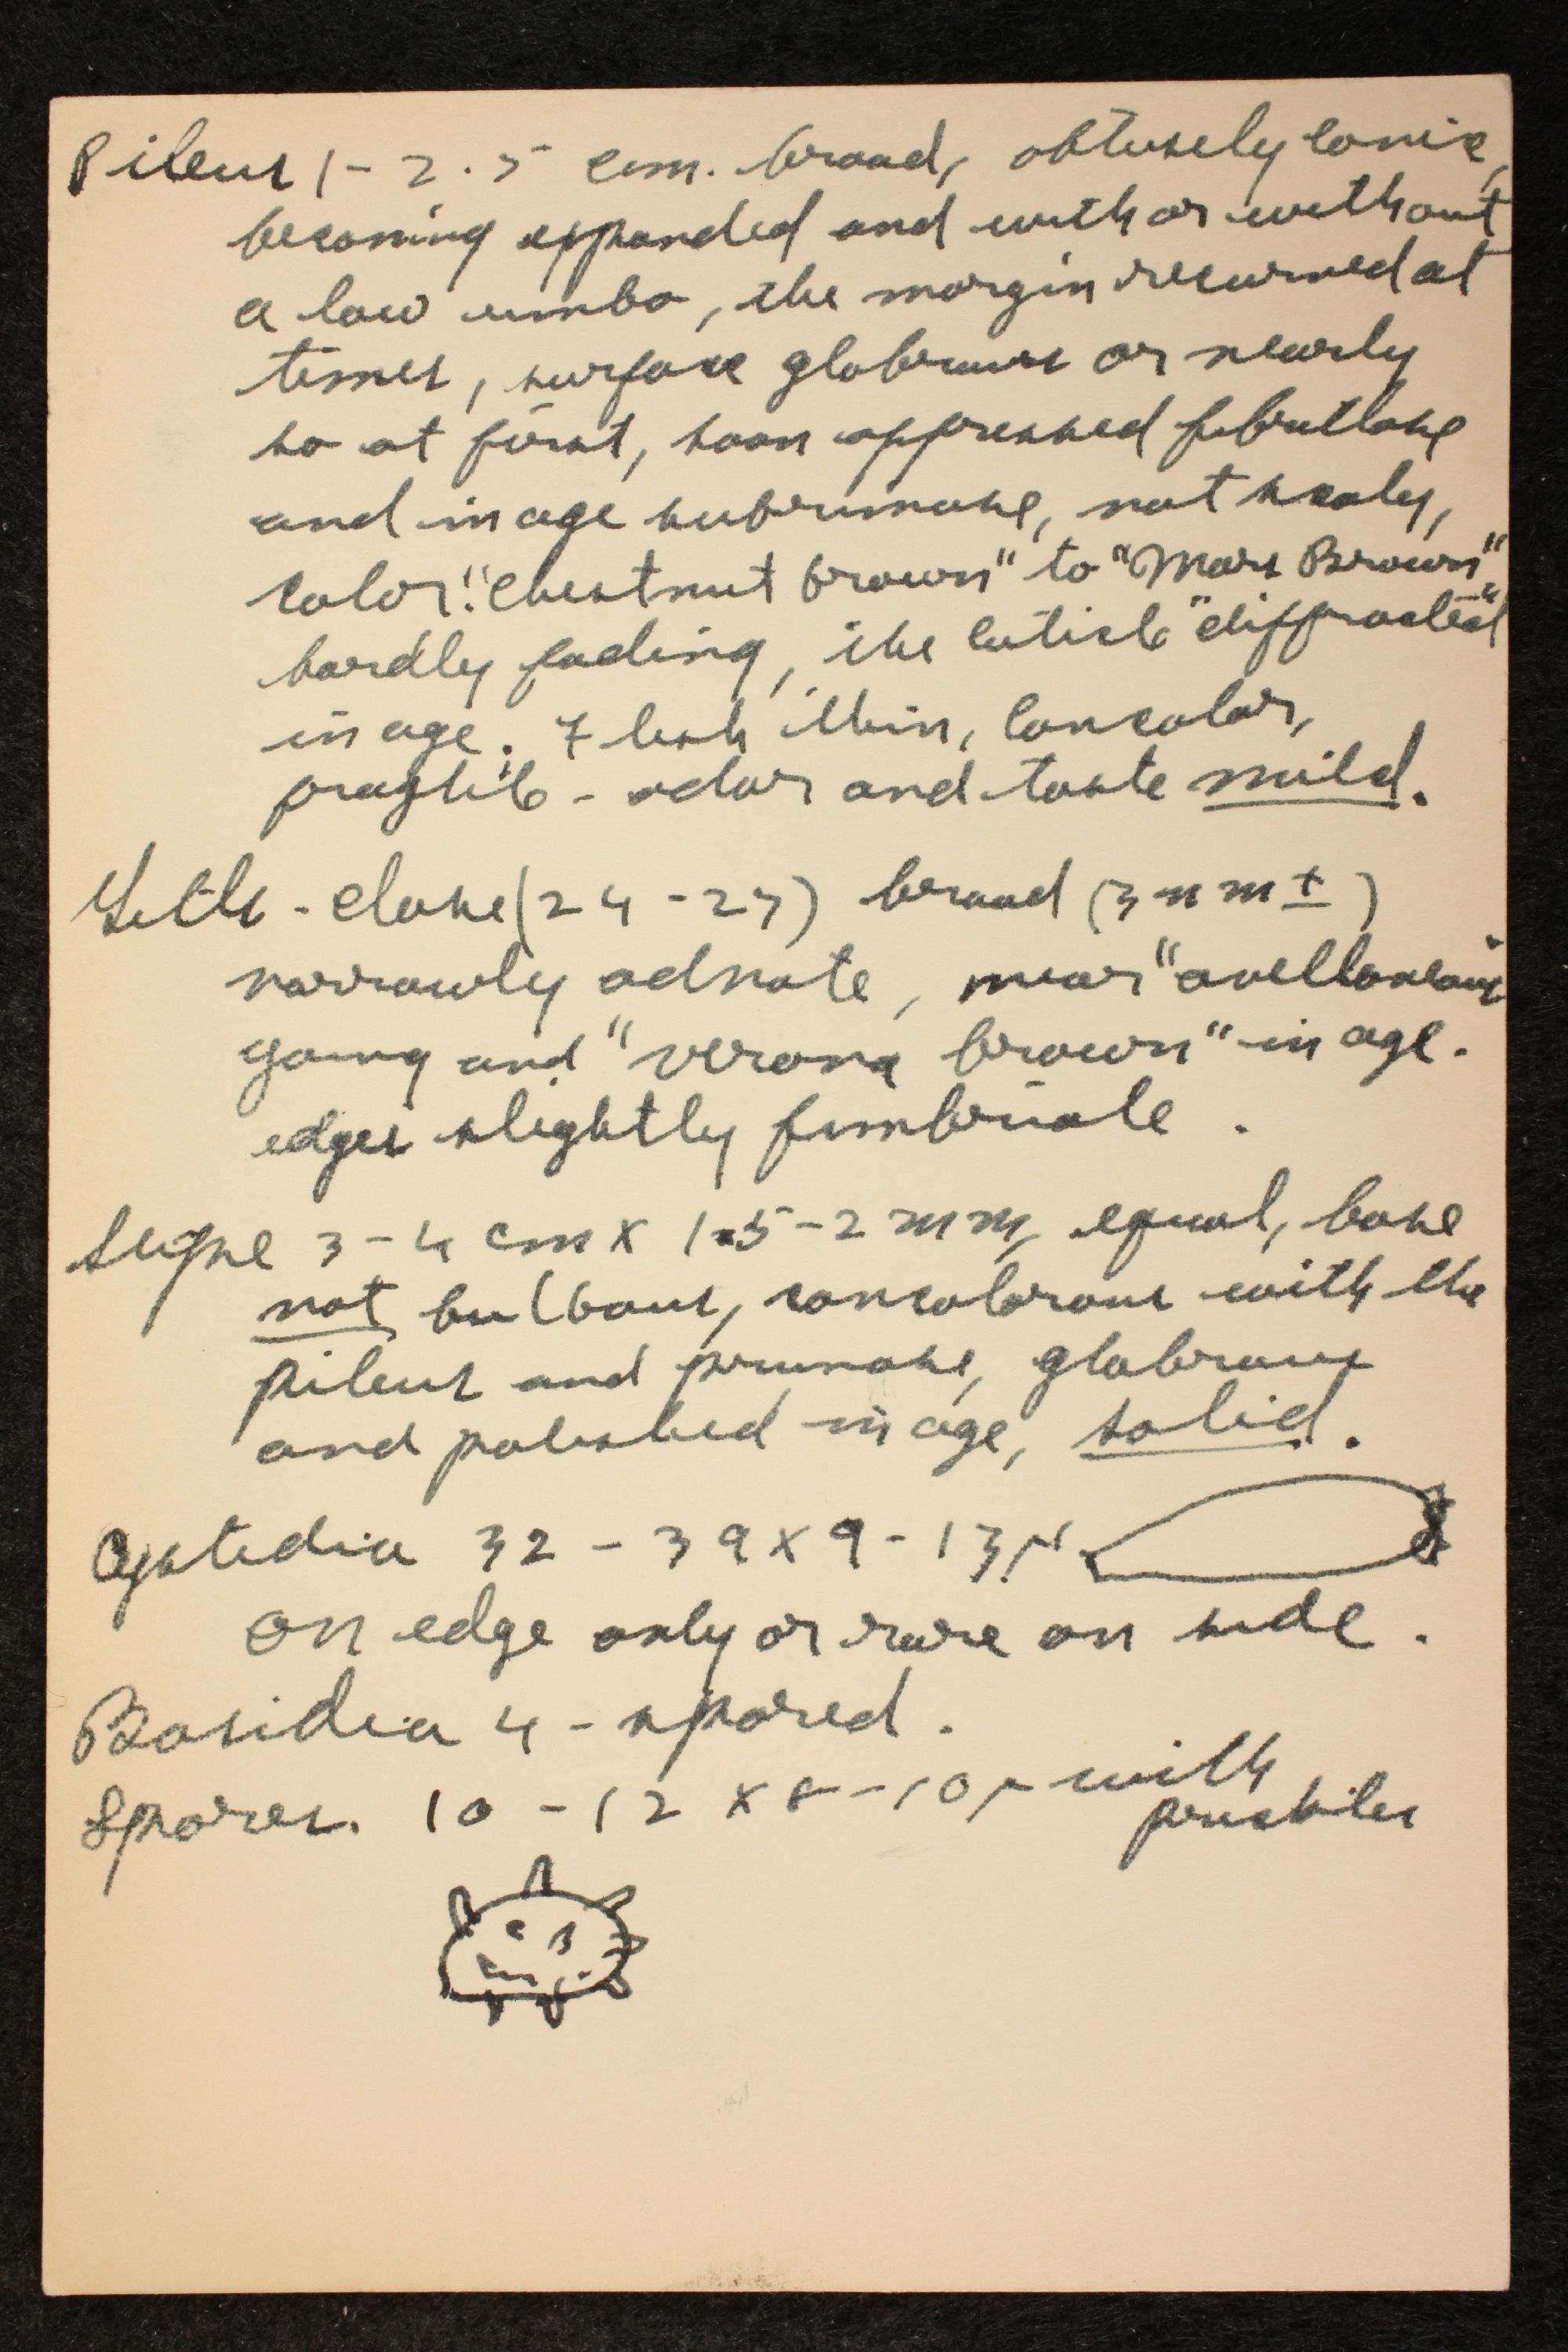 Pileus 1-2.5 cm. broad, obtusely conic,
becoming expanded and with or without
a low umbo, the margin recurved at
times, surface glabrous or nearly
so at first, soon appressed fibrillose
and in age subrimose, not scaly,
color: "chestnut brown" to "Mars Brown",
hardly fading, the cuticle "diffracted"
in age. Flesh thin, concolor,
fragile - odor and taste mild.
Gills - close (24-27) broad (3 mm ±)
narrowly adnate, near "avellaneous"
young and "verona brown" in age.
edges slightly fimbriate.
Stipe 3-4 cm x 1.5-2 mm, equal, base
not bulbous, concolorous with the
pileus and pruinose, glabrous
and polished in age, solid.
Cystidia 32-39 x 9-13μ
on edge only or rare on side.
Basidia 4-spored.
Spores. 10-12 x 8-10μ with